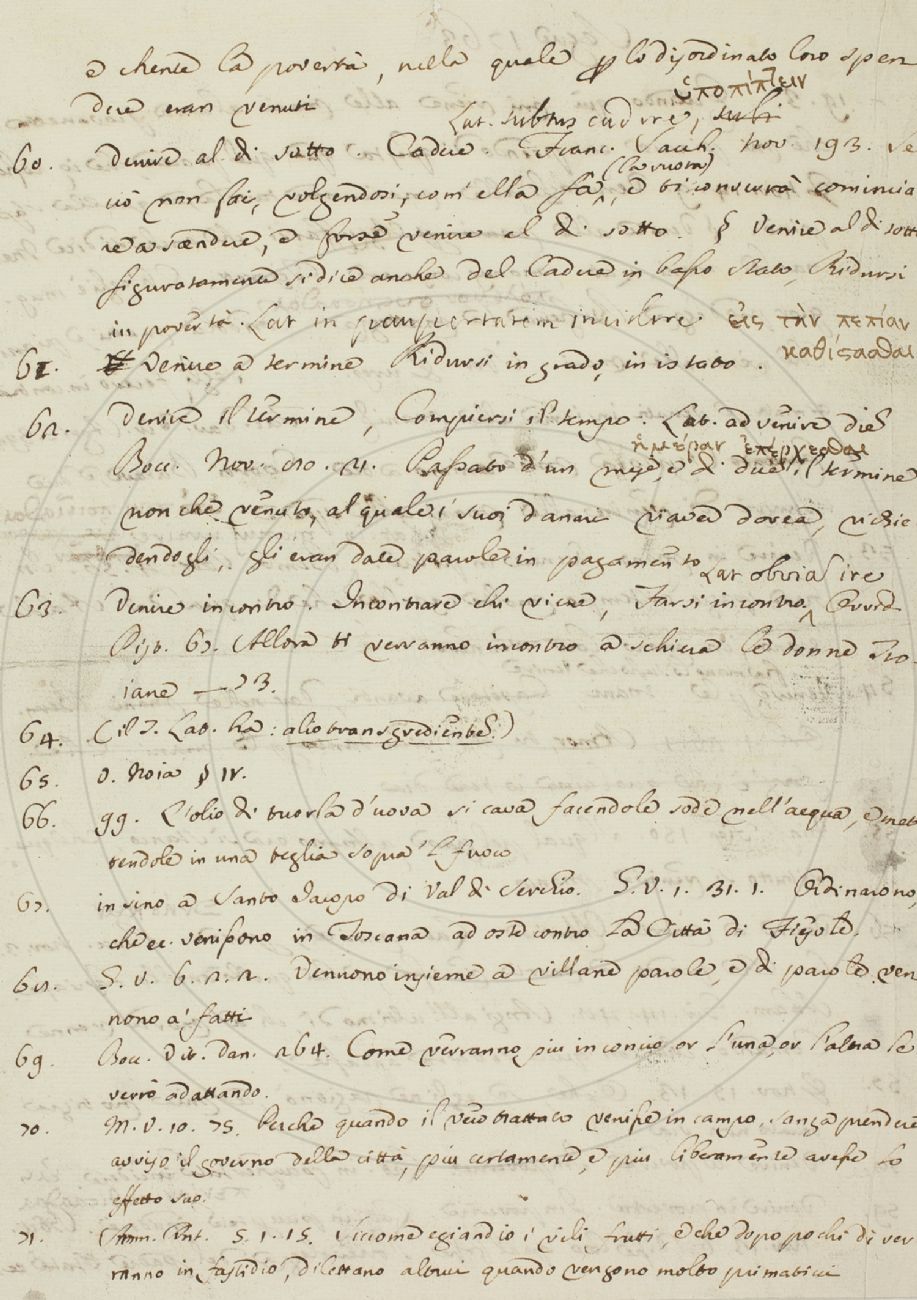 e chente la povertà, nella quale p lo disordinato loro spen
dere eran venuti
ὑποπίπτειν
Lat. subtus cadere,
60. Venire al di sotto. Cadere. Franc. Sacch. Nov. 193. Se
(la ruota)
ciò non fai, volgendosi, com' ella fa, e' ti converrà comincia
re a scendere, e forse venire al di sotto. § Venire al di sott
figuratamente si dice anche del Cadere in basso stato, Ridursi
in povertà. Lat. in paupertatem incidere. εἰς τὴν πενίαν
καθίσασθαι
61. Venire a termine Ridursi in grado, in istato.
62. Venire il termine, Compiersi il tempo. Lat. advenire dies
ἡμέραν ἐπέρχεσθαι
Bocc. Nov. 80. 21. Passato d'un mese, e di due il termine
non che venuto, al quale i suoi danari riaver dovea, richie
dendogli, gli eran date parole in pagamento
Lat. obviam ire
63. Venire incontro. Incontrare chi viene, Farsi incontro. Ovvid.
Pist. 67. Allora ti verranno incontro a schiera le donne Tro-
iane — 73.
64. (il T. Lat. ha: alio transgrediente.)
65. v. Noia § IV.
66. 99. L'olio di tuorla d'uova si cava facendole sode nell'acqua, e met
tendole in una teglia sopra 'l fuoco
67. insino a Santo Iacopo di Val di Serchio. G. V. 1. 31. 1. Ordinarono,
che ec. venissono in Toscana ad oste contro la Città di Fiesole.
68. G. V. 6. 2. 2. Vennono insieme a villane parole, e di parole ven
nono a' fatti
69. Bocc. Vit. Dan. 264. Come verranno più in concio or l'una, or l'altra le
verrò adattando.
70. M. V. 10. 75. Perchè quando il vero trattato venisse in campo, sanza prendere
avviso il governo della città, più certamente, e più liberamente avesse lo
effetto suo.
71. Amm. Ant. 5. 1. 15. Siccome eziandio i vili frutti, e che dopo pochi dì ver
ranno in fastidio, dilettano altrui quando vengono molto primaticci